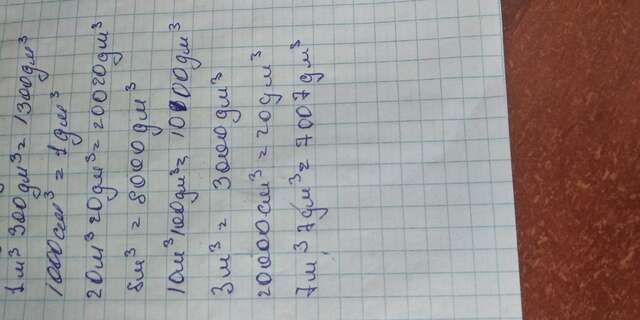 1м³ 300дм³ = 1300дм³
1000см³ = 1дм³
20м³ 20дм³ = 20020дм³
8м³ = 8000дм³
10м³ 100дм³ = 10100дм³
3м³ = 3000дм³
20000см³ = 20дм³
7м³ 7дм³ = 7007дм³